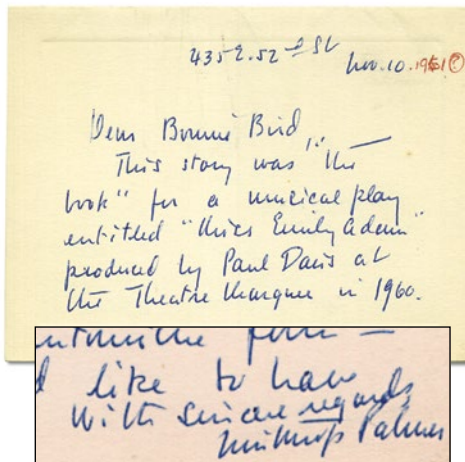 435 E. 52nd St
Nov. 10. 1961?
Dear Bonnie Bird,
This story was "the
book" for a musical play
entitled "Miss Emily Adam"
produced by Paul Davis at
the Theatre Marquee in 1960.
form —
like to have
With sincere regards,
Winthrop Palmer